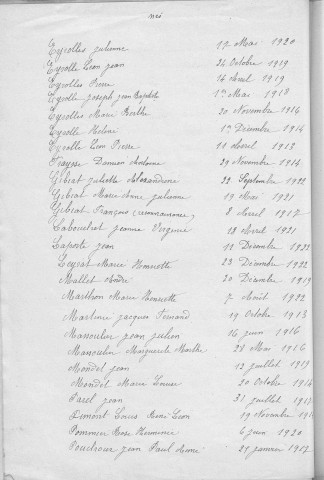 Eyrolles Julienne 12 Mai 1920
Eyrolle Léon Jean 26 Octobre 1919
Eyrolles Pierre 14 Avril 1919
Eyrolle Joseph Jean Baptiste 1er Mai 1918
Eyrolles Marie Berthe 20 Novembre 1916
Eyrolle 17 Décembre 1914
Eyrolle Léon Pierre 11 Avril 1913
Fraysse Damien Antoine 29 Novembre 1914
Gibiat Juliette Alexandrine 22 Septembre 1922
Gibiat Marie Anne Julienne 19 Mai 1921
Gibiat François (reconnaissance) 8 Avril 1917
Labouchet Jeanne Virginie 18 Avril 1921
Laporte Jean 12 Décembre 1922
Leyrat Marie Henriette 23 Décembre 1922
Mallet André 20 Décembre 1919
Marthon Marie Henriette 7 Août 1922
Martinie Jacques Fernand 19 Octobre 1913
Massoulier Jean Julien 16 Juin 1916
Massoulier Marguerite Marthe 28 Mai 1916
Mondet Jean 12 Juillet 1919
Mondet Marie Louise 20 Octobre 1914
Parel Jean 31 Juillet 1913
Louis René Léon 19 Novembre
Pommier Rose Hermine 6 Juin 1920
Jean Paul René 21 Janvier 1917